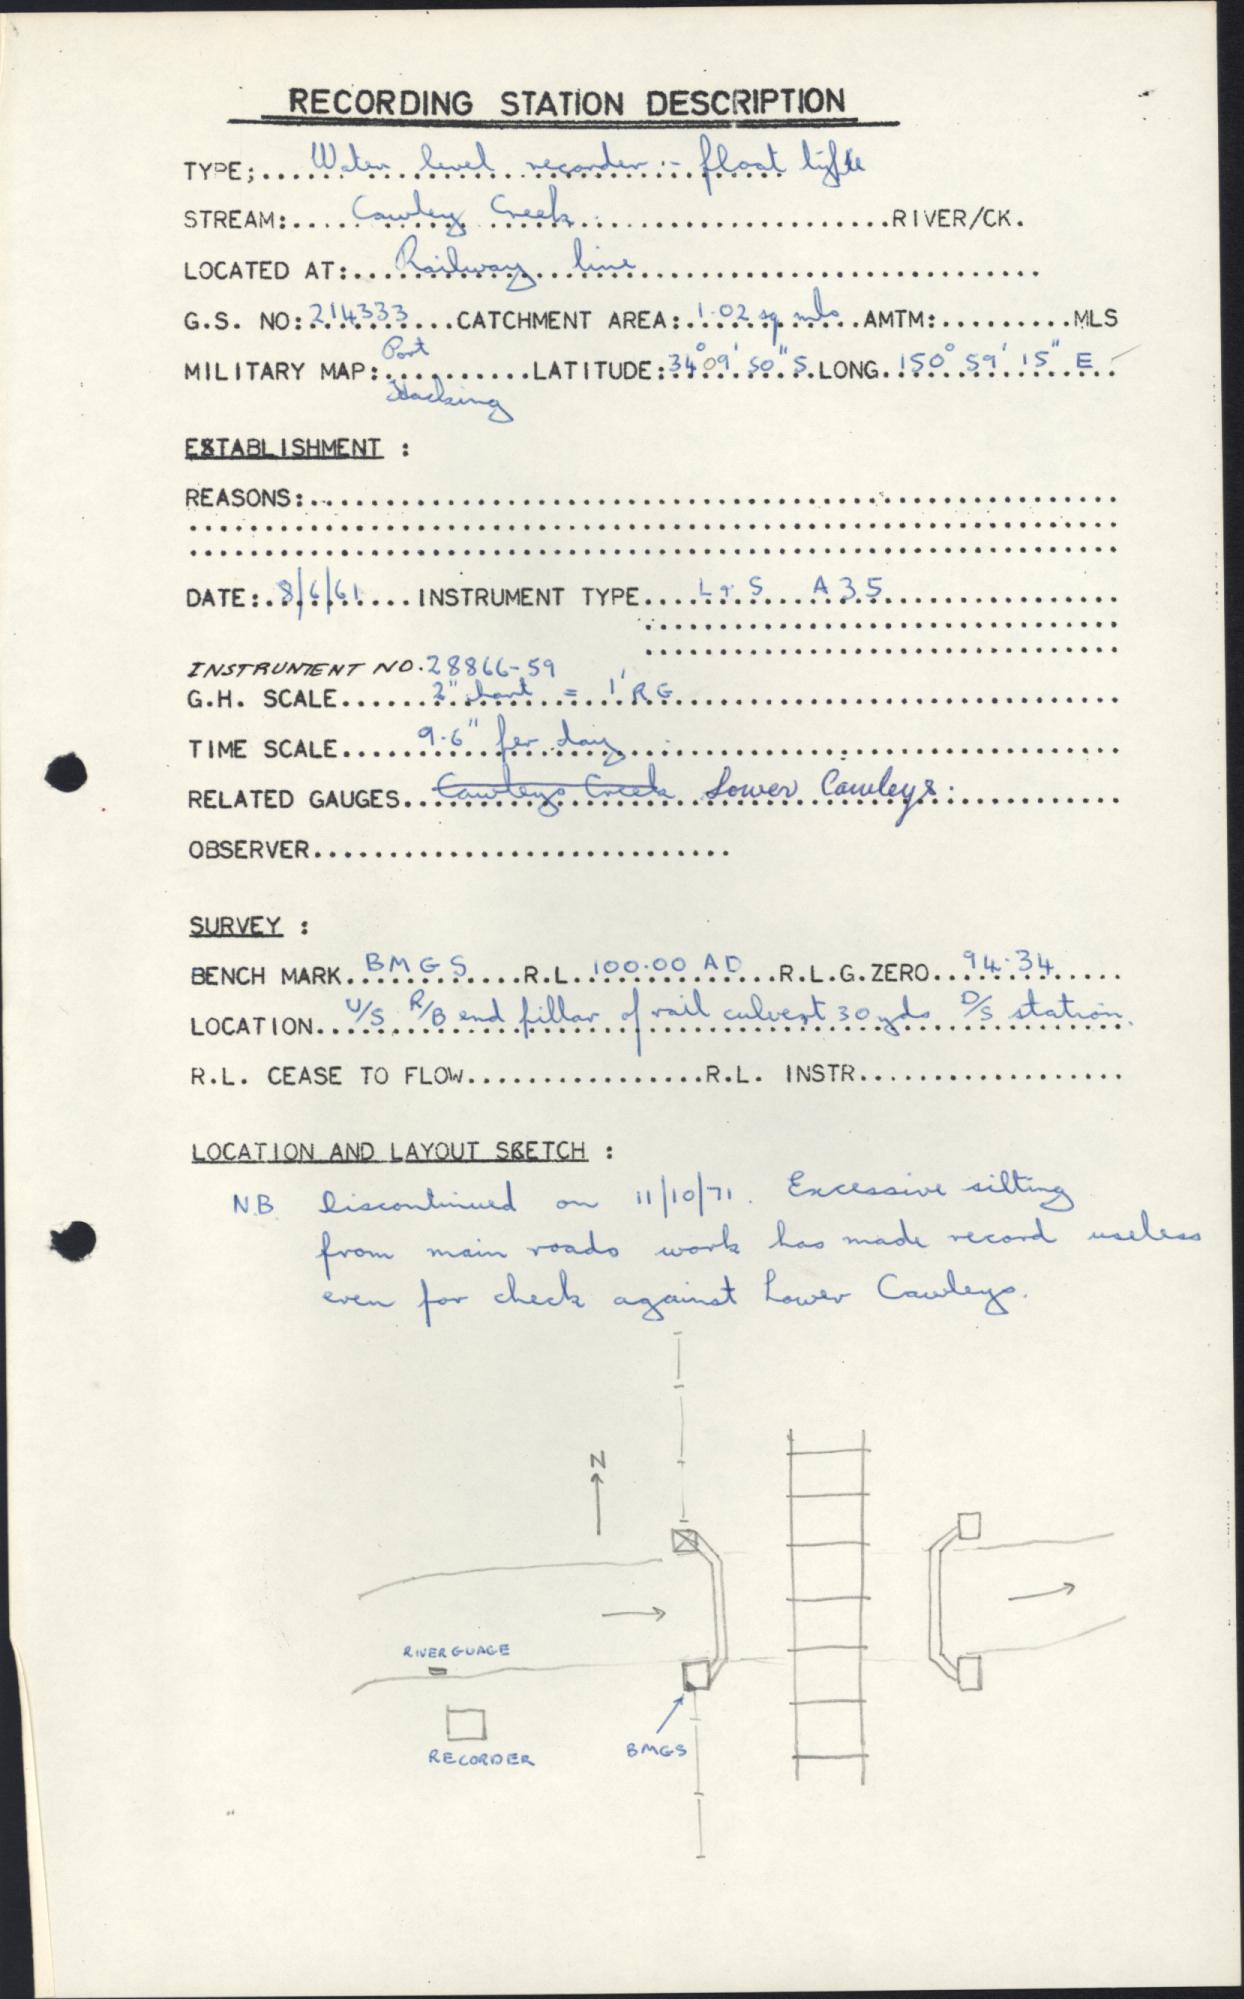 RECORDING STATION DESCRIPTION
TYPE; Water level recorder - float type
STREAM: Cawley Creek RIVER/CK.
LOCATED AT: Railway line
G.S. NO: 214333 CATCHMENT AREA: 1.02 sq mls AMTM: MLS
MILITARY MAP: Port Hacking LATITUDE: 34° 09' 50" S LONG. 150° 59' 15" E
ESTABLISHMENT :
REASONS:
DATE: 8/6/61 INSTRUMENT TYPE L & S A35
INSTRUMENT NO. 28866-59
G.H. SCALE 2" chart = 1' RG
TIME SCALE 9.6" per day
RELATED GAUGES Cawleys Creek Lower Cawleys
OBSERVER
SURVEY :
BENCH MARK BMGS R.L. 100.00 AD R.L.G.ZERO 94.34
LOCATION U/S R/B end pillar of rail culvert 30 yds D/S station.
R.L. CEASE TO FLOW R.L. INSTR
LOCATION AND LAYOUT SKETCH :
N.B Discontinued on 11/10/71. Excessive silting
from main roads work has made record useless
even for check against Lower Cawleys.
N
RIVER GUAGE
RECORDER
BMGS